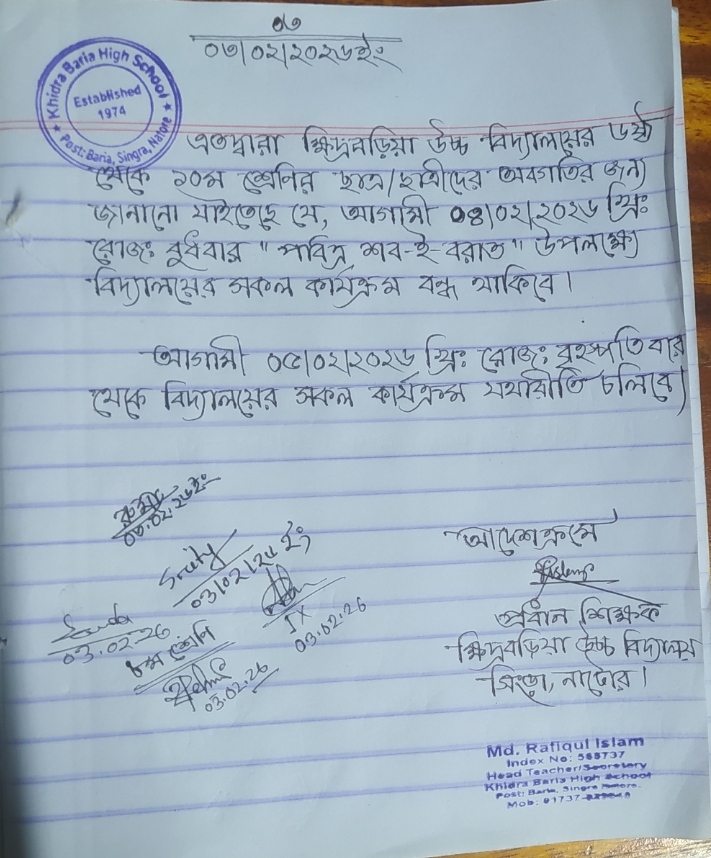 ০৩
০৩/০২/২০২৬ইং
Khidra Baria High School
Established
1974
Post: Baria, Singra, Natore
এতদ্বারা ক্ষিদ্রবড়িয়া উচ্চ বিদ্যালয়ের ৬ষ্ঠ
থেকে ১০ম শ্রেণির ছাত্র/ছাত্রীদের অবগতির জন্য
জানানো যাইতেছে যে, আগামী ০৪/০২/২০২৬ খ্রিঃ
রোজঃ বুধবার "পবিত্র শব-ই-বরাত" উপলক্ষ্যে
বিদ্যালয়ের সকল কার্যক্রম বন্ধ থাকিবে।
আগামী ০৫/০২/২০২৬ খ্রিঃ রোজঃ বৃহস্পতিবার
থেকে বিদ্যালয়ের সকল কার্যক্রম যথারীতি চলিবে।
০৩.০২.২৬ইং
০৩/০২/২৬ ইং
03.02.26
৮ম শ্রেণি
03.02.26
IX
03.02.26
আদেশক্রমে
প্রধান শিক্ষক
ক্ষিদ্রবড়িয়া উচ্চ বিদ্যালয়
সিংড়া, নাটোর।
Md. Rafiqul Islam
Index No: 568737
Head Teacher/Secretary
Khidra Baria High School
Post: Baria, Singra Natore.
Mob: 01737